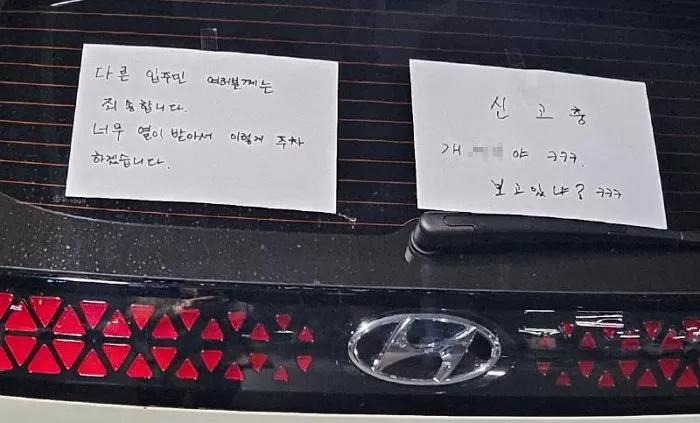 다른 입주민 여러분께는
죄송합니다.
너무 열이 받아서 이렇게 주차
하겠습니다.
신고충
개 야 ㅋㅋㅋ.
보고있냐? ㅋㅋㅋ